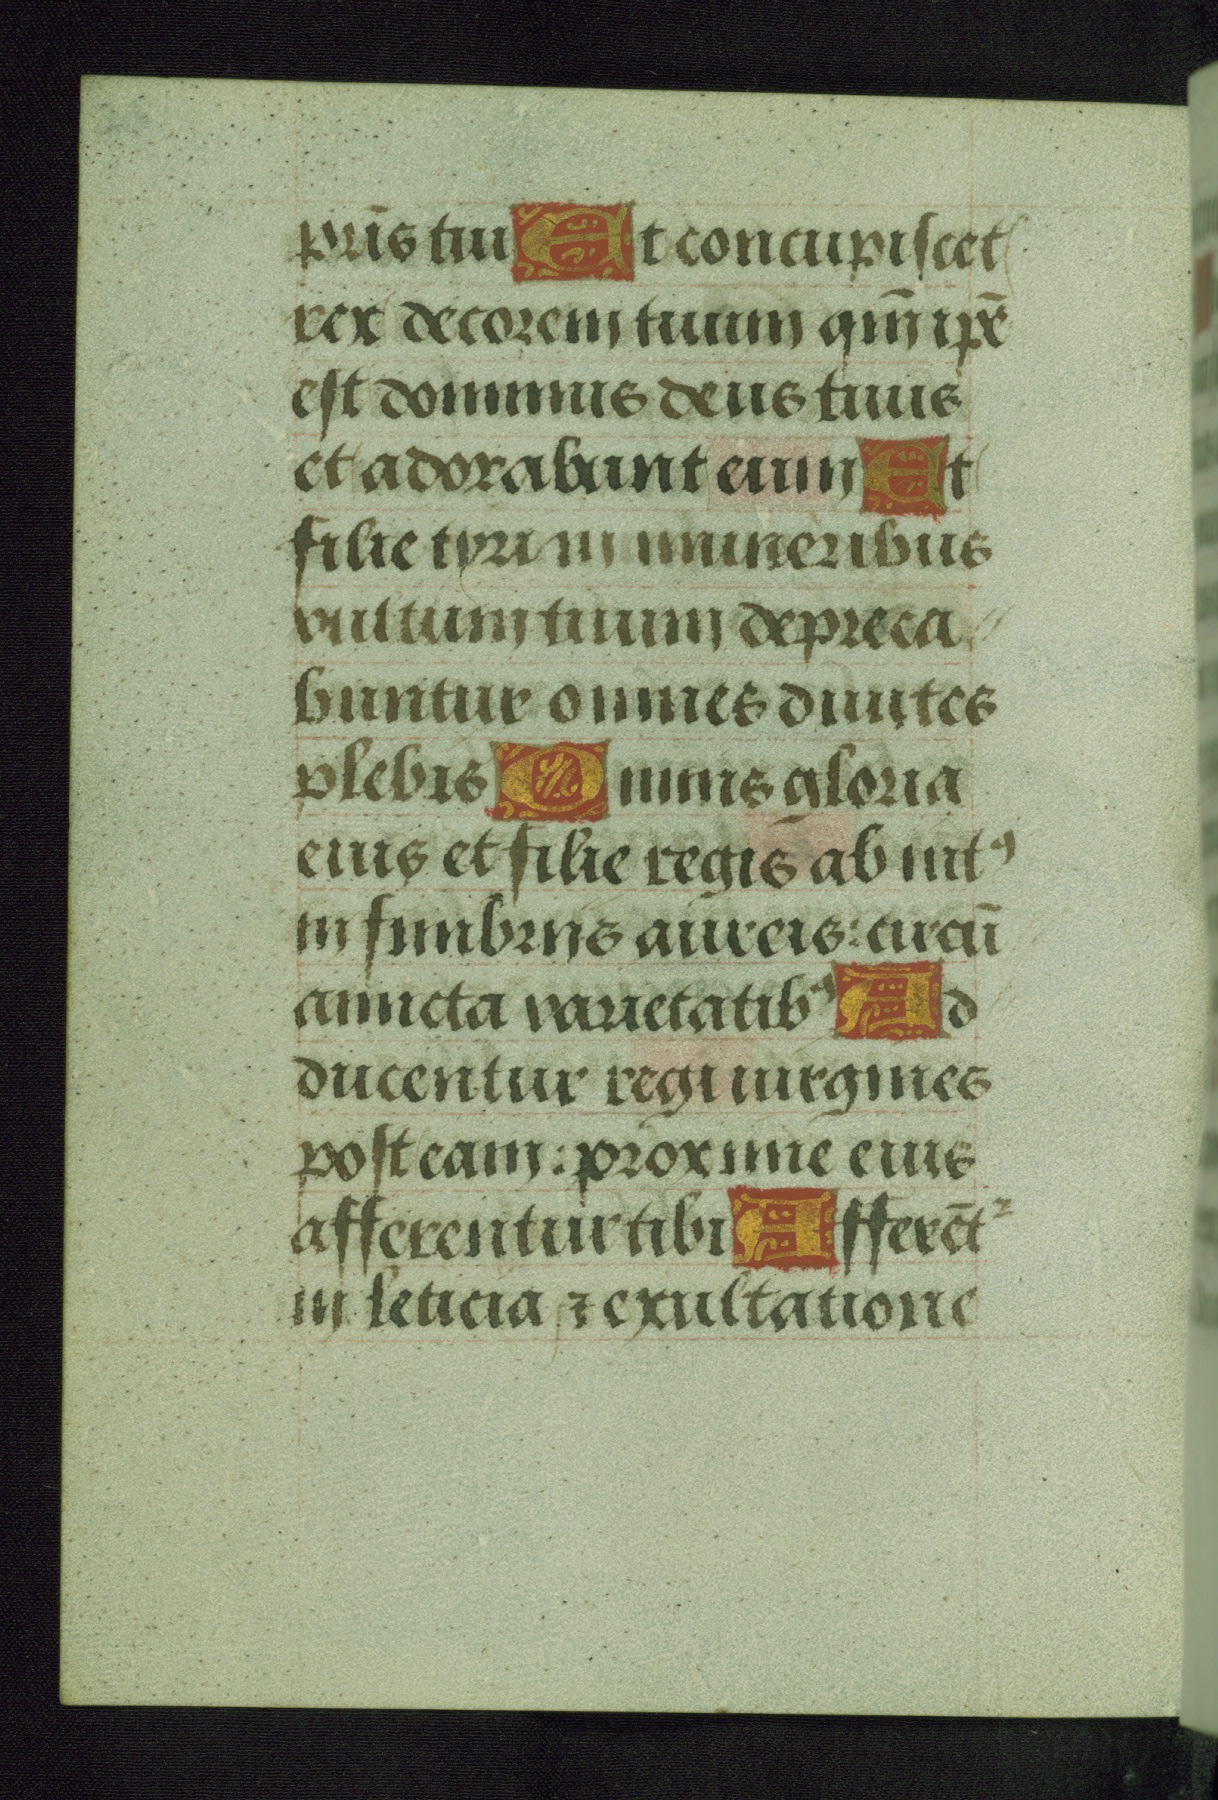 pr̄is tui Et concupiscet
rex decorem tuum qm̄ ip̄e
est dominus deus tuus
et adorabunt eum Et
filie tyri in muneribus
vultum tuum depreca//
buntur omnes diuites
plebis Omnis gloria
eius et filie regis ab intꝰ
in fimbriis aureis: circū
amicta varietatibꝰ Ad//
ducentur regi uirgines
post eam: proxime eius
afferentur tibi Afferēt᷑
in leticia ⁊ exultatione